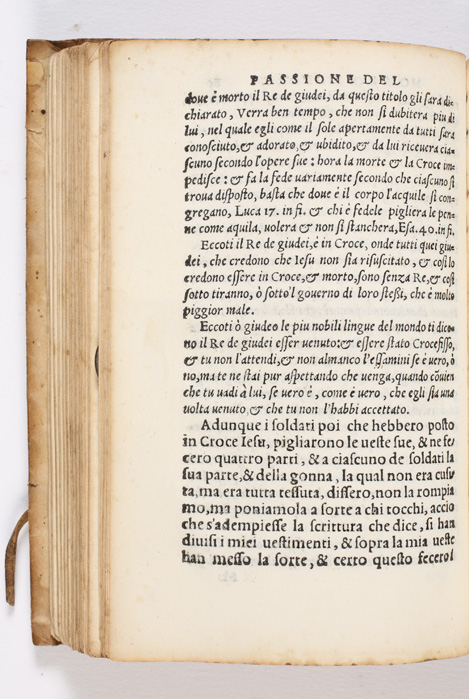 PASSIONE DEL
doue è morto il Re de giudei, da questo titolo gli sara di-
chiarato, Verra ben tempo, che non si dubitera piu di
lui, nel quale egli come il sole apertamente da tutti sara
conosciuto, & adorato, & ubidito, & da lui riceuera cia-
scuno secondo l'opere sue: hora la morte & la Croce im-
pedisce: & fa la fede uariamente secondo che ciascuno si
troua disposto, basta che doue è il corpo l'acquile si con-
gregano, Luca 17. in fi. & chi è fedele pigliera le pen-
ne come aquila, uolera & non si stanchera, Esa. 40. in fi.
Eccoti il Re de giudei, è in Croce, onde tutti quei giu-
dei, che credono che Iesu non sia risuscitato, & cosi lo
credono essere in Croce, & morto, sono senza Re, & cosi
sotto tiranno, ò sotto'l gouerno di loro stessi, che è molto
piggior male.
Eccoti ò giudeo le piu nobili lingue del mondo ti dico-
no il Re de giudei esser uenuto: & essere stato Crocefisso,
& tu non l'attendi, & non almanco l'essamini se è uero, ò
no, ma te ne stai pur aspettando che uenga, quando cōuien
che tu uadi à lui, se uero è, come è uero, che egli sia una
uolta uenuto, & che tu non l'habbi accettato.
Adunque i soldati poi che hebbero posto
in Croce Iesu, pigliarono le ueste sue, & ne fe/
cero quattro parti, & a ciascuno de soldati la
sua parte, & della gonna, la qual non era cusi/
ta, ma era tutta tessuta, dissero, non la rompia
mo, ma poniamola a sorte a chi tocchi, accio
che s'adempiesse la scrittura che dice, si han
diuisi i miei uestimenti, & sopra la mia ueste
han messo la sorte, & certo questo fecero l